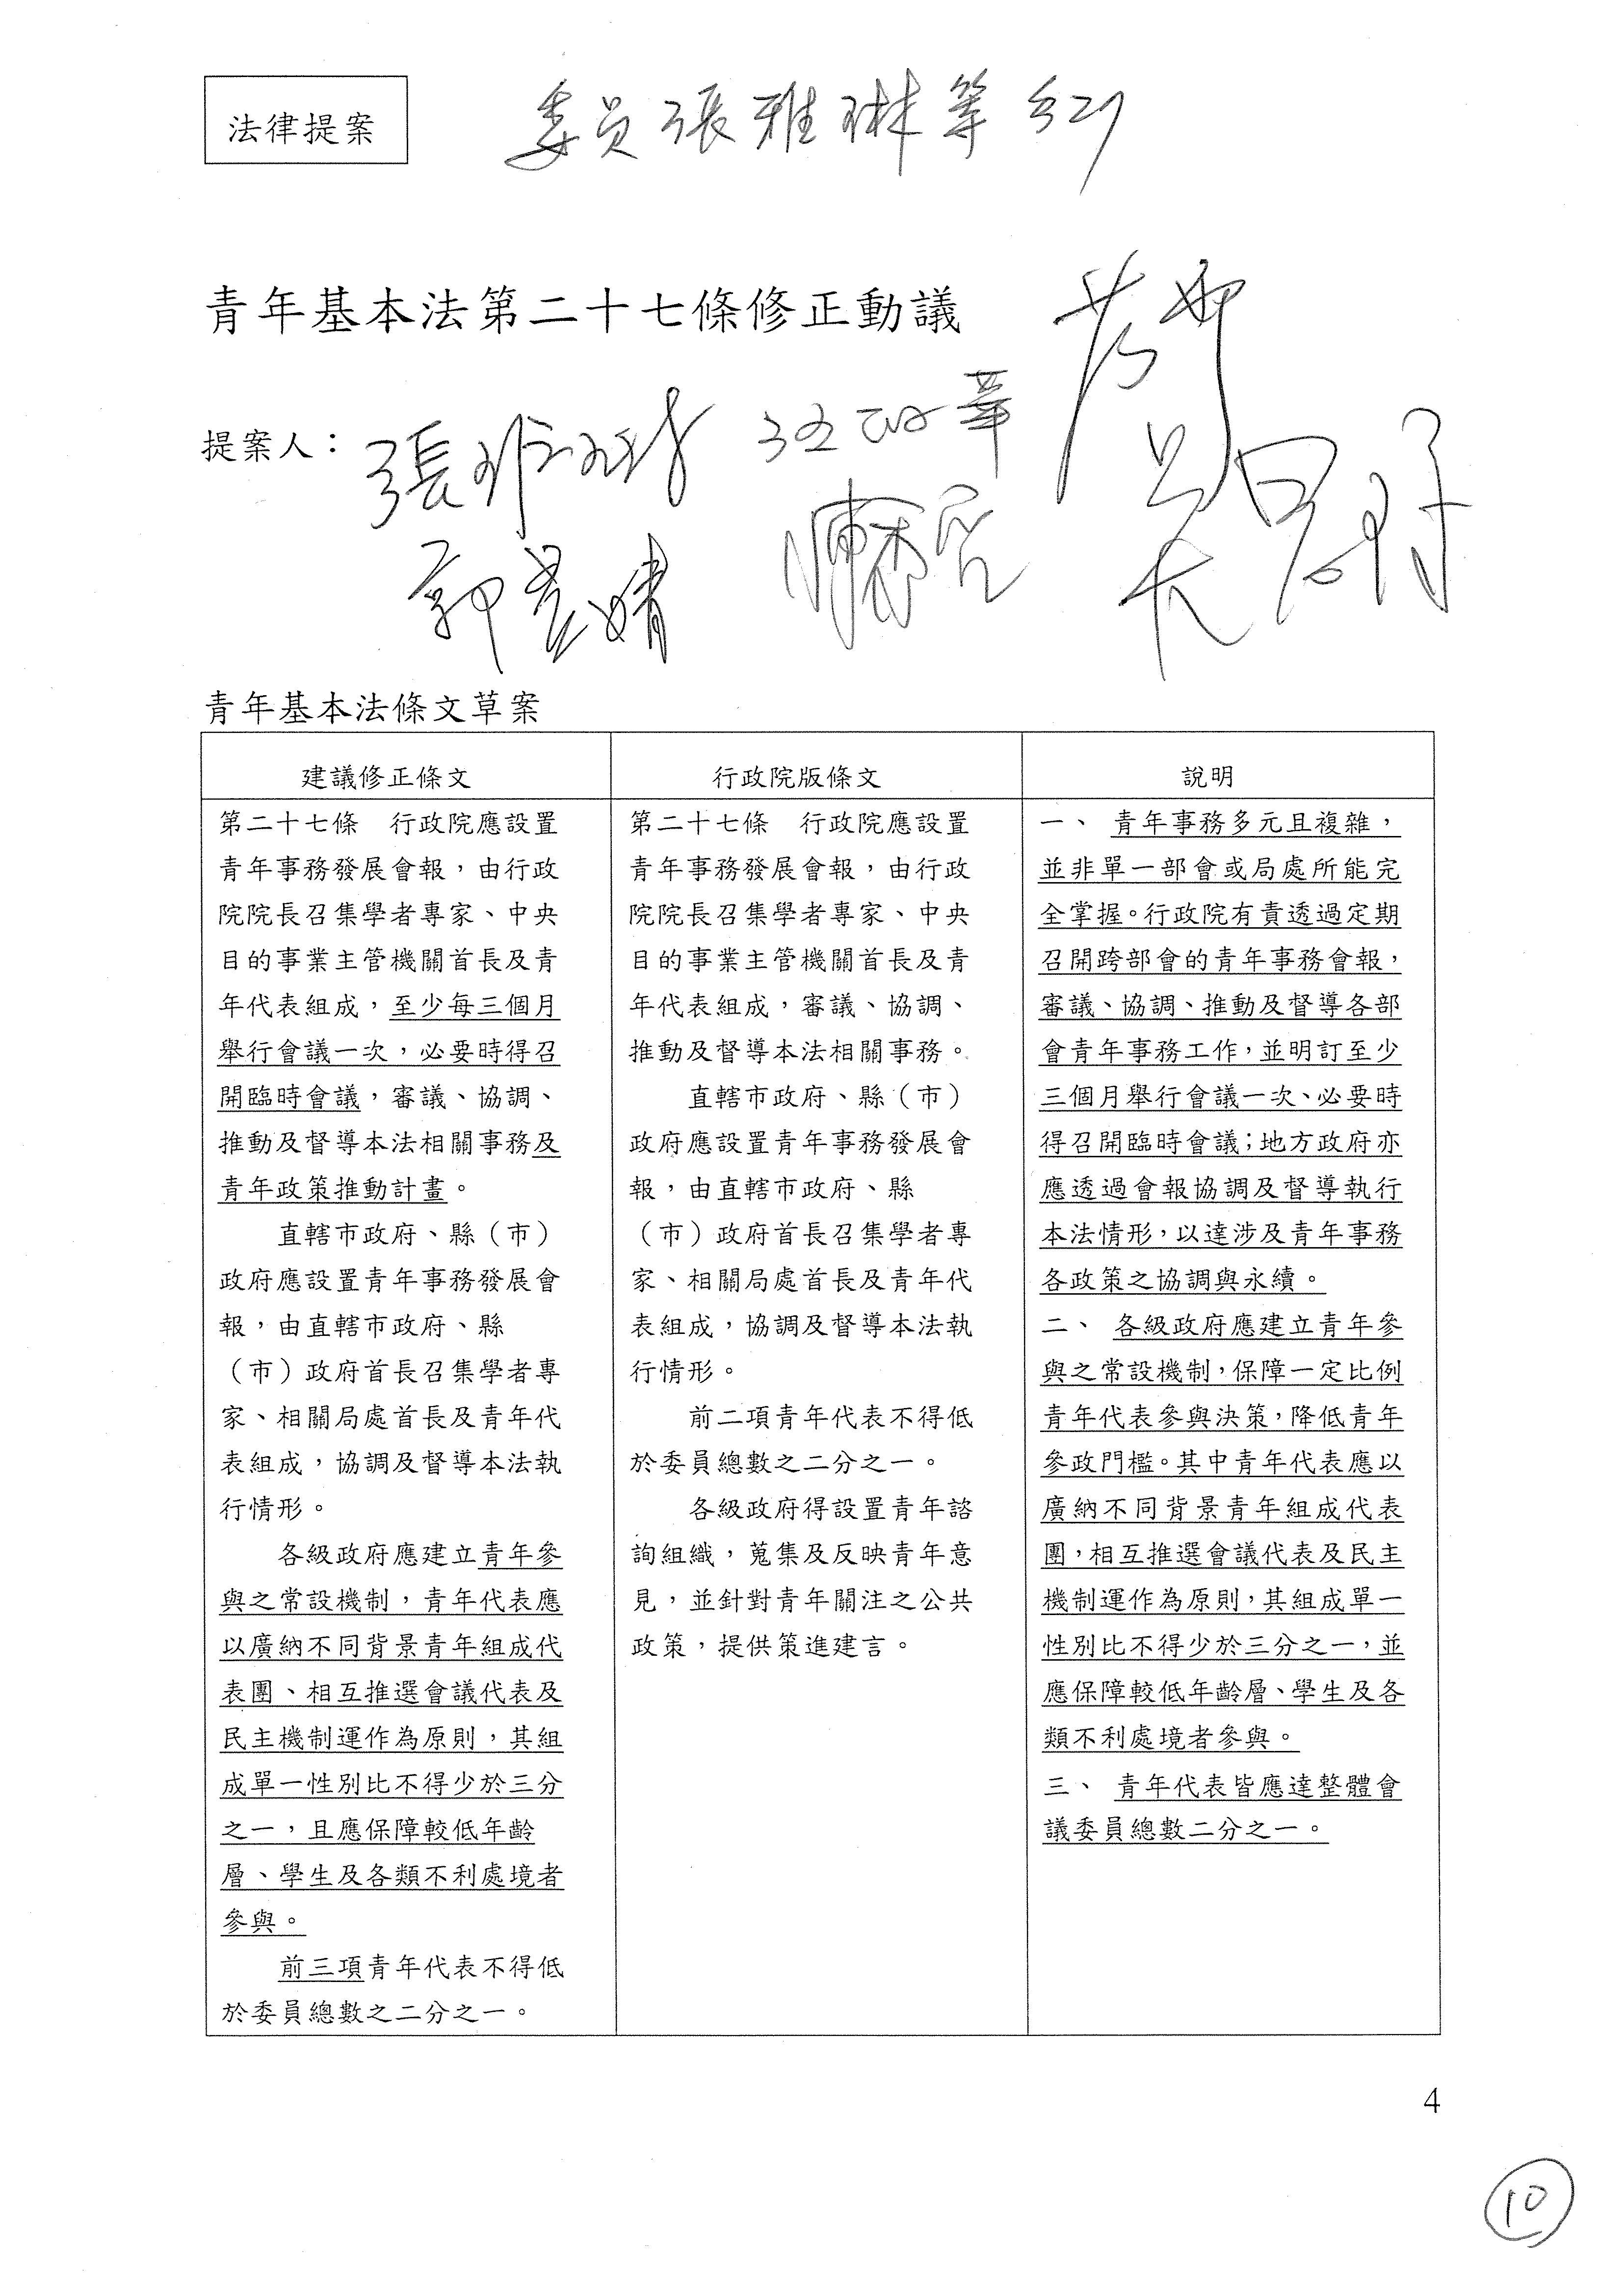 法律提案
委員張雅琳等
青年基本法第二十七條修正動議
提案人：
張雅琳
范雲
郭昱晴
陳秀宝
吳思瑤
青年基本法條文草案
建議修正條文
第二十七條　行政院應設置
青年事務發展會報，由行政
院院長召集學者專家、中央
目的事業主管機關首長及青
年代表組成，至少每三個月
舉行會議一次，必要時得召
開臨時會議，審議、協調、
推動及督導本法相關事務及
青年政策推動計畫。
直轄市政府、縣（市）
政府應設置青年事務發展會
報，由直轄市政府、縣
（市）政府首長召集學者專
家、相關局處首長及青年代
表組成，協調及督導本法執
行情形。
各級政府應建立青年參
與之常設機制，青年代表應
以廣納不同背景青年組成代
表團、相互推選會議代表及
民主機制運作為原則，其組
成單一性別比不得少於三分
之一，且應保障較低年齡
層、學生及各類不利處境者
參與。
前三項青年代表不得低
於委員總數之二分之一。
行政院版條文
第二十七條　行政院應設置
青年事務發展會報，由行政
院院長召集學者專家、中央
目的事業主管機關首長及青
年代表組成，審議、協調、
推動及督導本法相關事務。
直轄市政府、縣（市）
政府應設置青年事務發展會
報，由直轄市政府、縣
（市）政府首長召集學者專
家、相關局處首長及青年代
表組成，協調及督導本法執
行情形。
前二項青年代表不得低
於委員總數之二分之一。
各級政府得設置青年諮
詢組織，蒐集及反映青年意
見，並針對青年關注之公共
政策，提供策進建言。
說明
一、 青年事務多元且複雜，
並非單一部會或局處所能完
全掌握。行政院有責透過定期
召開跨部會的青年事務會報，
審議、協調、推動及督導各部
會青年事務工作，並明訂至少
三個月舉行會議一次、必要時
得召開臨時會議；地方政府亦
應透過會報協調及督導執行
本法情形，以達涉及青年事務
各政策之協調與永續。
二、 各級政府應建立青年參
與之常設機制，保障一定比例
青年代表參與決策，降低青年
參政門檻。其中青年代表應以
廣納不同背景青年組成代表
團，相互推選會議代表及民主
機制運作為原則，其組成單一
性別比不得少於三分之一，並
應保障較低年齡層、學生及各
類不利處境者參與。
三、 青年代表皆應達整體會
議委員總數二分之一。
4
10